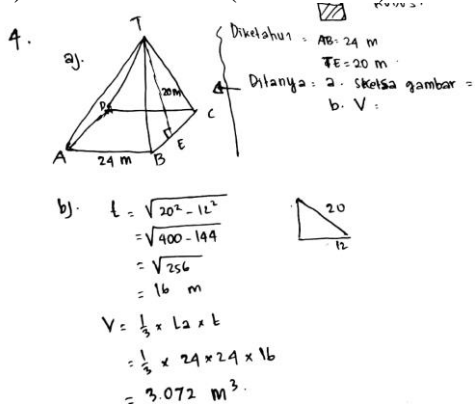 4.
a).
T
D
20m
C
E
A
24 m
B
Diketahui : AB = 24 m
TE = 20 m
Ditanya : a. sketsa gambar =
b. V :
b). t = √20² - 12²
= √400 - 144
= √256
= 16 m
20
12
V = 1/3 × La × t
= 1/3 × 24 × 24 × 16
= 3.072 m³.